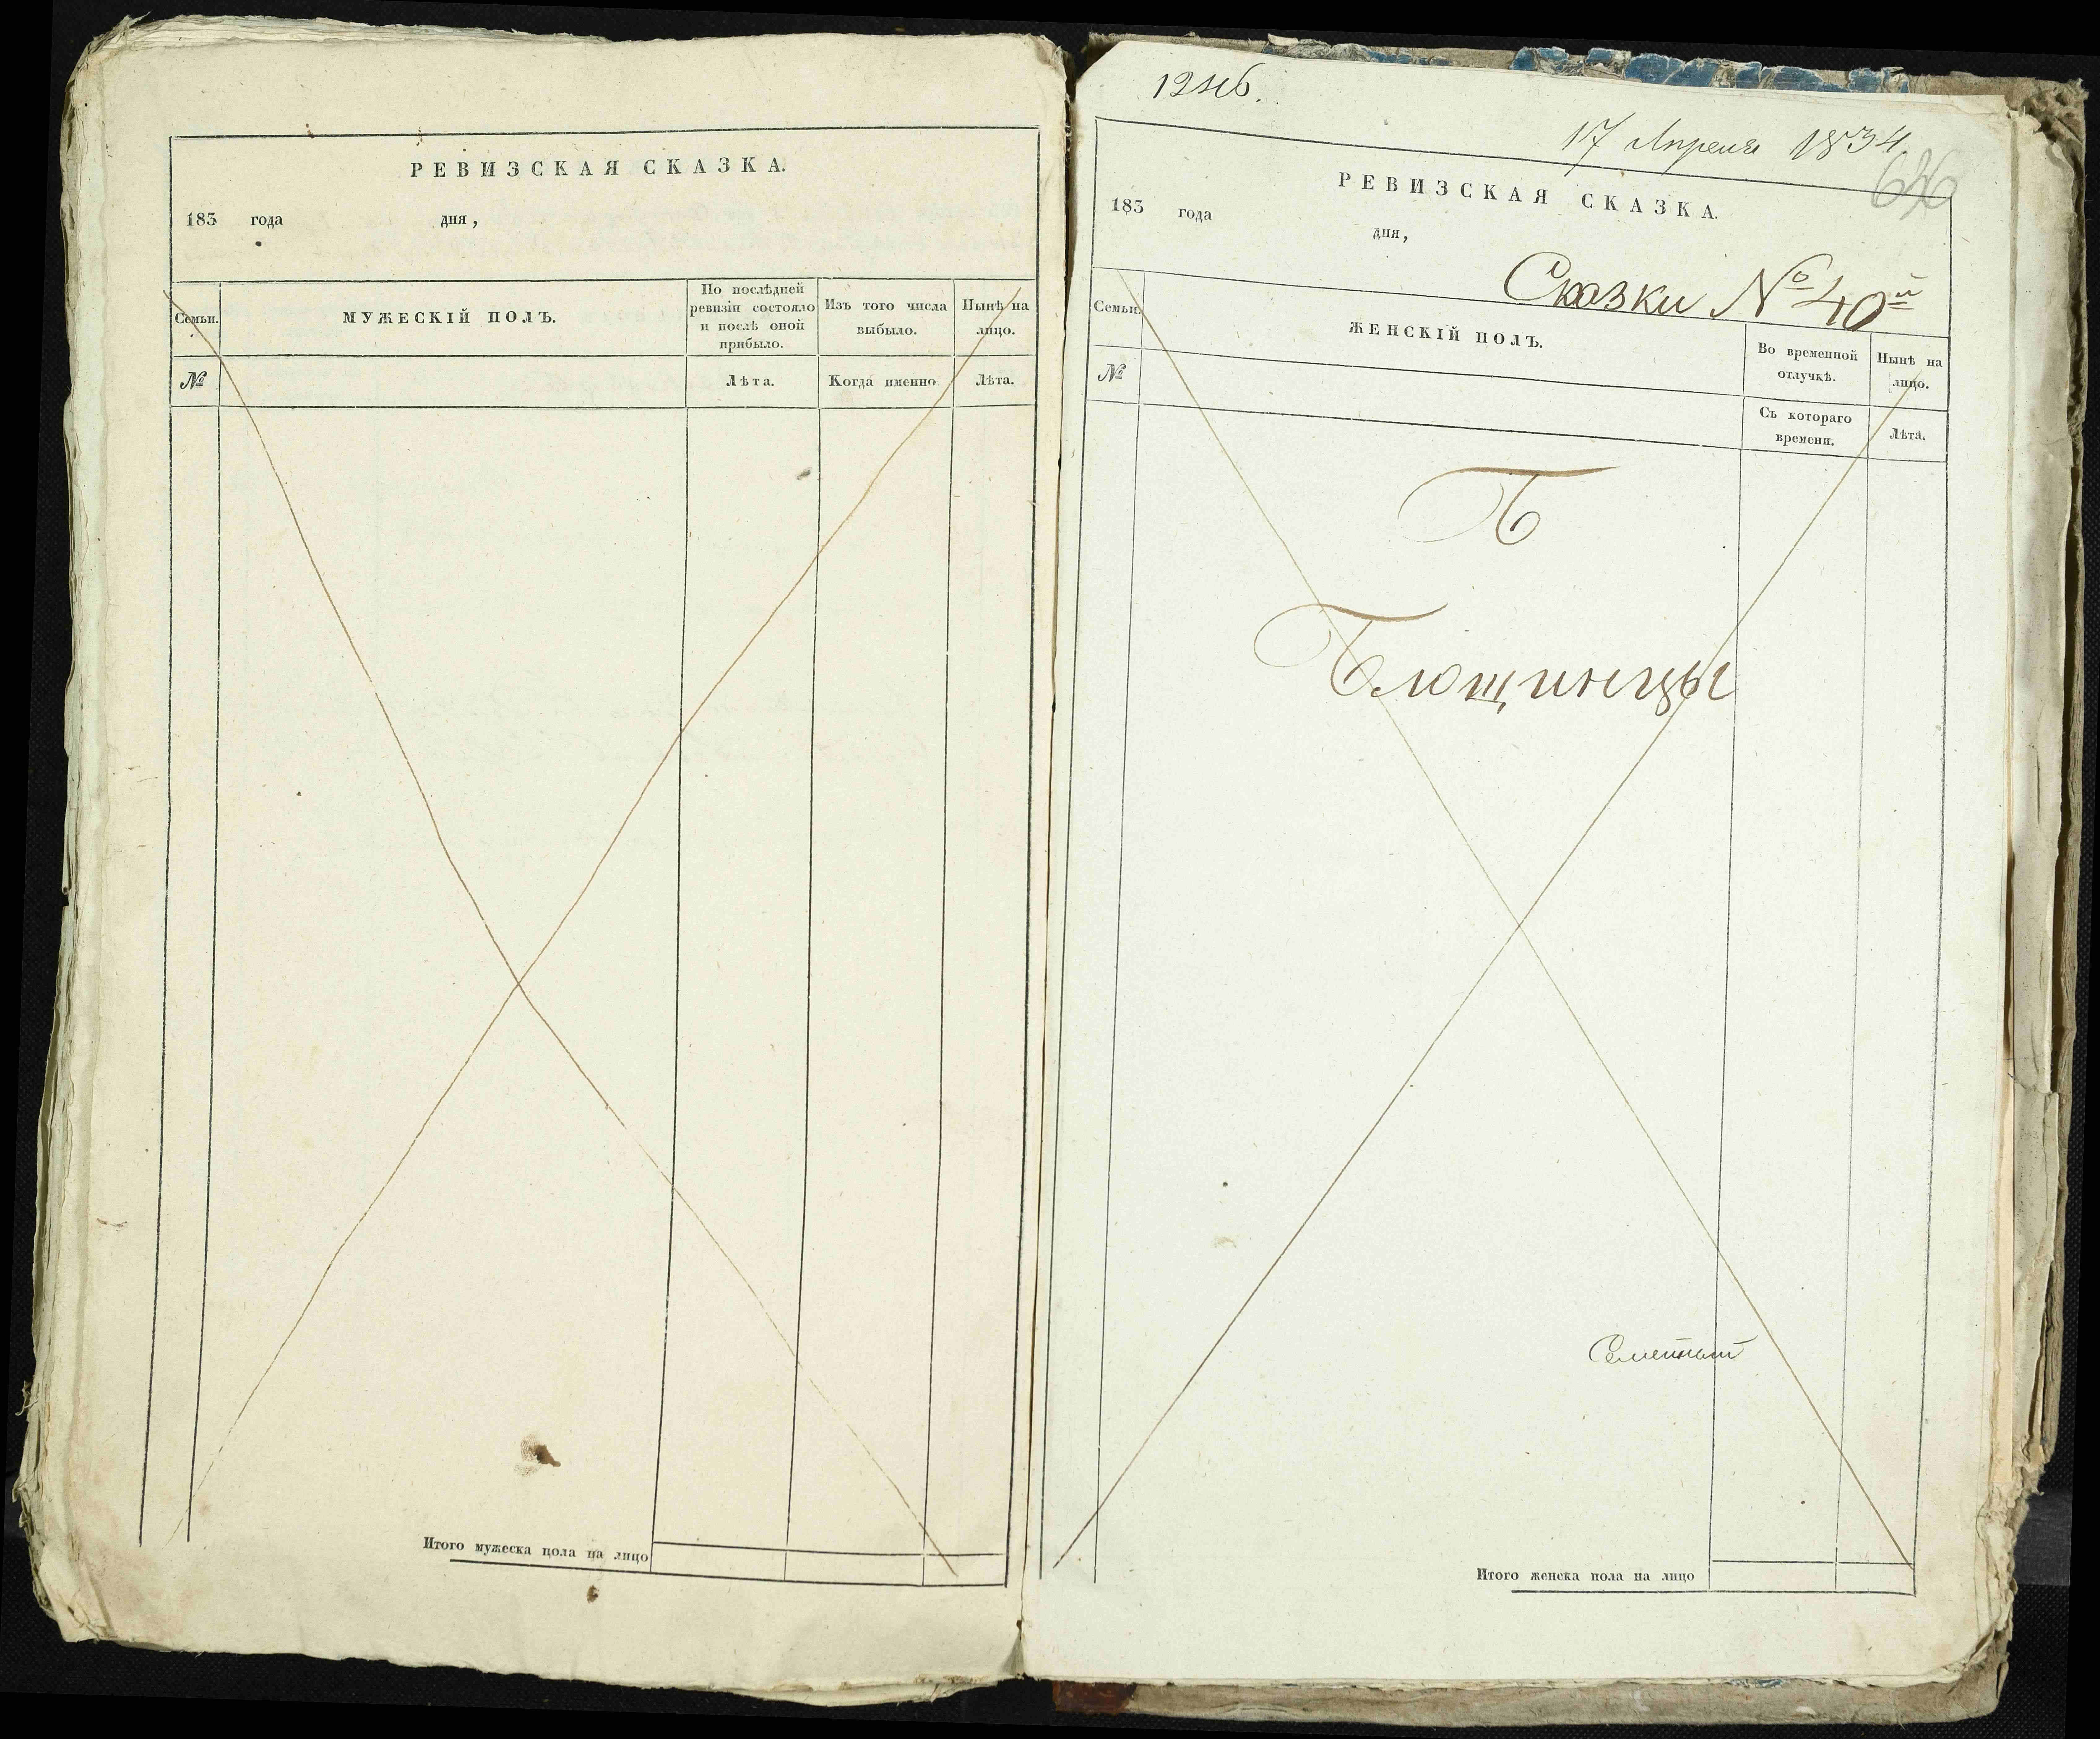 РЕВИЗСКАЯ СКАЗКА.
183 года дня,
Семьи.
МУЖЕСКІЙ ПОЛЪ.
По послѣдней
ревизіи состояло
и послѣ оной
прибыло.
Изъ того числа
выбыло.
Нынѣ на
лицо.
№
Лѣта.
Когда именно.
Лѣта.
Итого мужеска пола на лицо
17 Апреля 1834.
РЕВИЗСКАЯ СКАЗКА.
183 года дня,
Сказки № 40й
Семьи.
ЖЕНСКІЙ ПОЛЪ.
Во временной
отлучкѣ.
Нынѣ на
лицо.
№
Съ котораго
времени.
Лѣта.
Б
Блощинцы
Итого женска пола на лицо